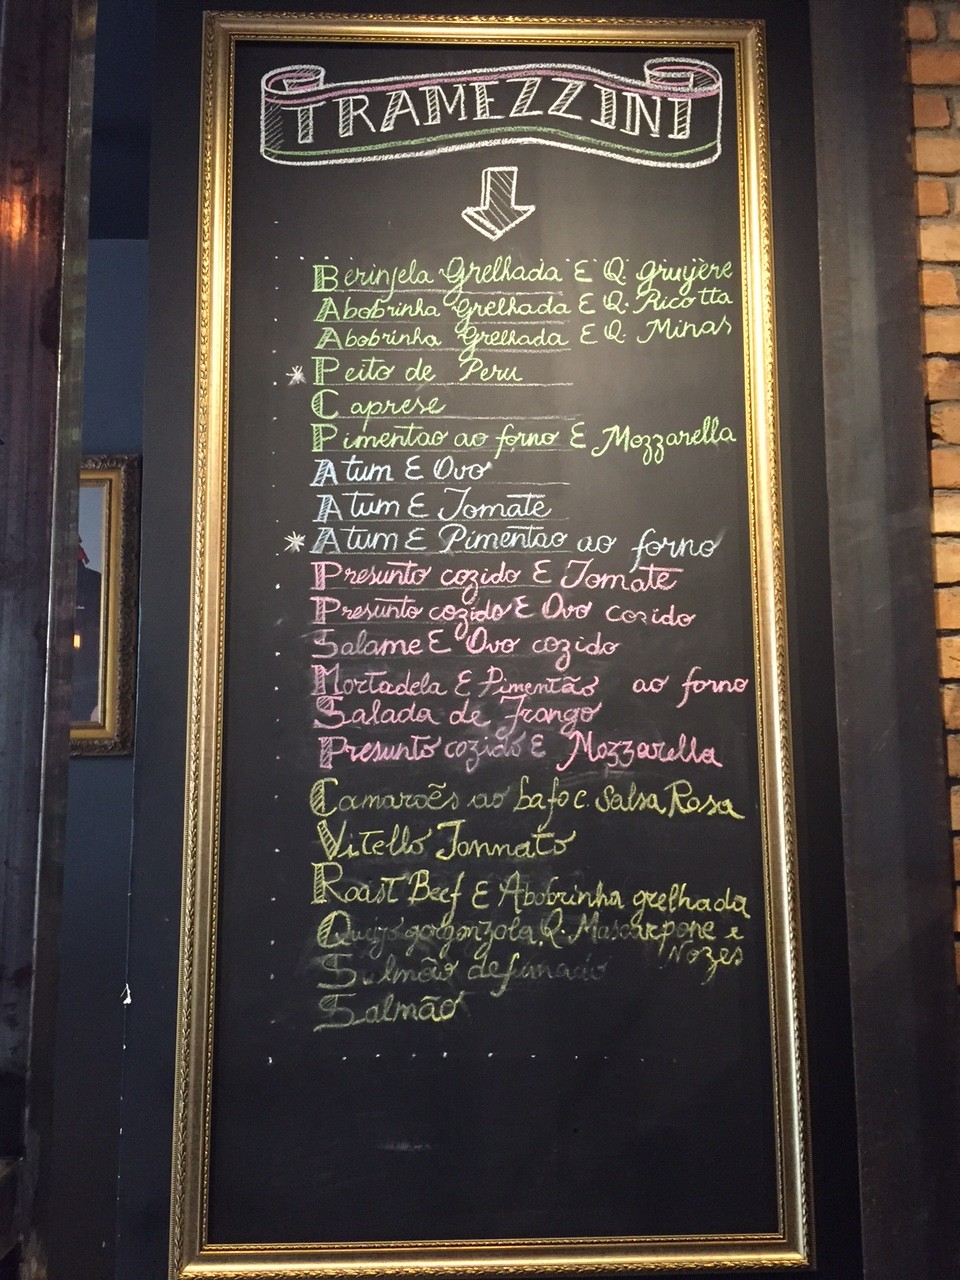 TRAMEZZINI
Berinjela Grelhada E Q. gruyère
Abobrinha Grelhada E Q. Ricotta
Abobrinha Grelhada E Q. Minas
* Peito de Peru
Caprese
Pimentao ao forno E Mozzarella
Atum E Ovo
Atum E Tomate
* Atum E Pimentao ao forno
Presunto cozido E Tomate
Presunto cozido E Ovo cozido
Salame E Ovo cozido
Mortadela E Pimentão ao forno
Salada de Frango
Presunto cozido E Mozzarella
Camarões ao bafo c. Salsa Rosa
Vitello Tonnato
Roast Beef E Abobrinha grelhada
Queijo gorgonzola, Q. Mascarpone e
Nozes
Salmão defumado
Salmão